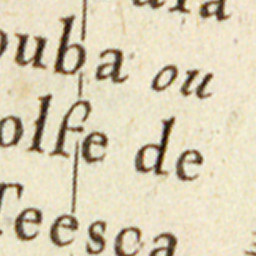 ara
ouba ou
olfe de
Teesca